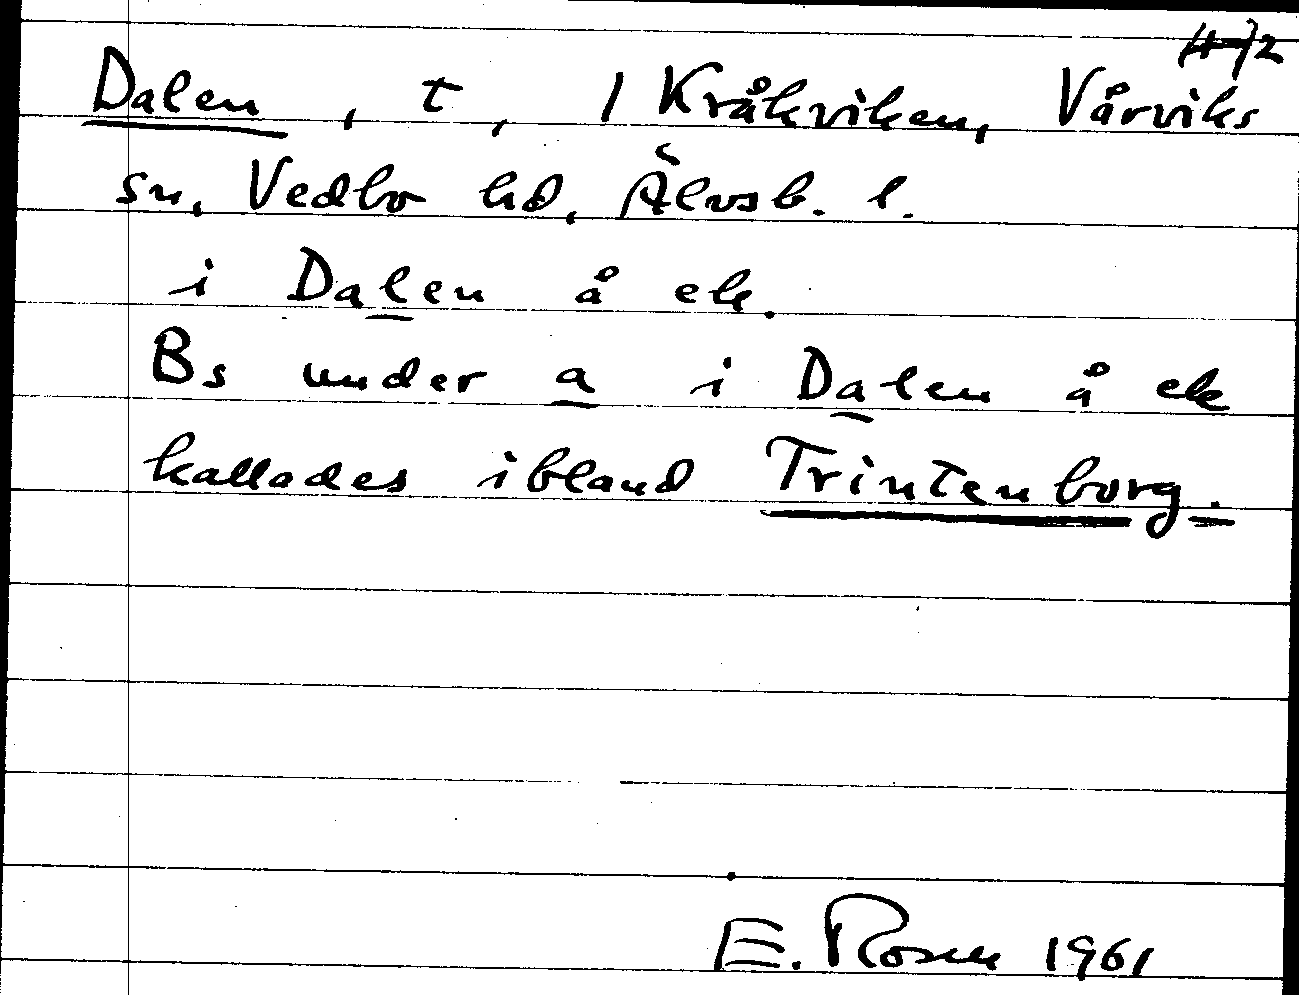 Dalen, t, 1 Kråkviken, Vårviks
sn, Vedbo hd, Älvsb. l.
i Dalen å ek.
Bs under a i Dalen å ek
kallades ibland Trintenborg.
E. Rosen 1961